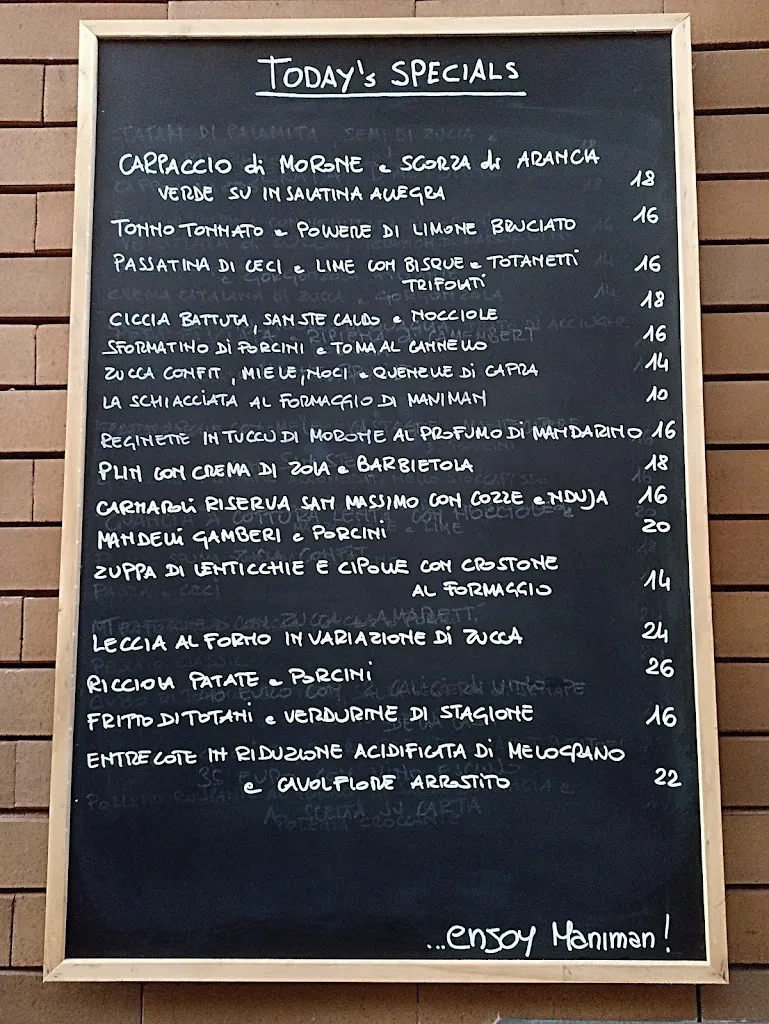 TODAY'S SPECIALS
CARPACCIO di MORONE e SCORZA di ARANCIA
VERDE SU INSALATINA ALLEGRA 18
TONNO TONNATO e POLVERE DI LIMONE BRUCIATO 16
PASSATINA DI CECI e LIME CON BISQUE e TOTANETTI 16
TRIFOLATI
CICCIA BATTUTA, SANSTE CALDO e NOCCIOLE 18
SFORMATINO DI PORCINI e TOMA AL CANNELLO 16
ZUCCA CONFIT, MIELE, NOCI e QUENELLE DI CAPRA 14
LA SCHIACCIATA AL FORMAGGIO DI MANIMAN 10
REGINETTE IN TUCCU DI MORONE AL PROFUMO DI MANDARINO 16
PLIN CON CREMA DI ZOLA e BARBIETOLA 18
CARNAROLI RISERVA SAN MASSIMO CON COZZE e NDUJA 16
MANDELLI GAMBERI e PORCINI 20
ZUPPA DI LENTICCHIE E CIPOLLE CON CROSTONE
AL FORMAGGIO 14
LECCIA AL FORNO IN VARIAZIONE DI ZUCCA 24
RICCIOLA PATATE e PORCINI 26
FRITTO DI TOTANI e VERDURINE DI STAGIONE 16
ENTRECOTE IN RIDUZIONE ACIDIFICATA DI MELOGRANO
e CAVOLFIORE ARROSTITO 22
...enjoy Maniman!